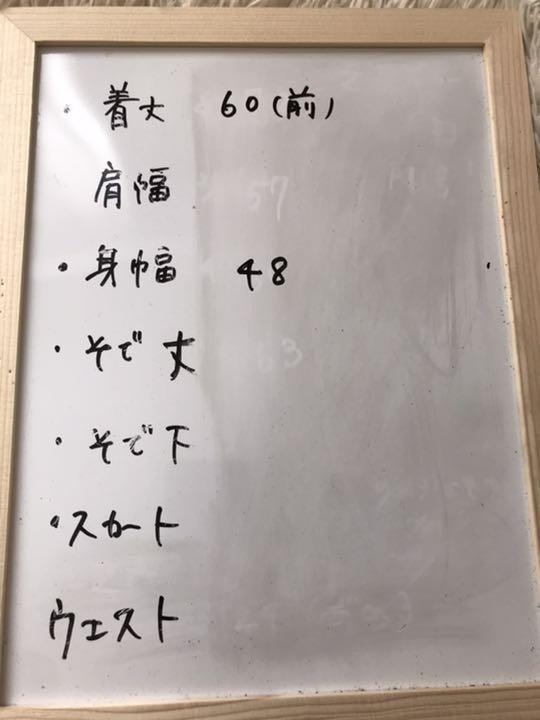 ・着丈 60(前)
肩幅
・身幅 48
・そで丈
・そで下
・スカート
ウエスト